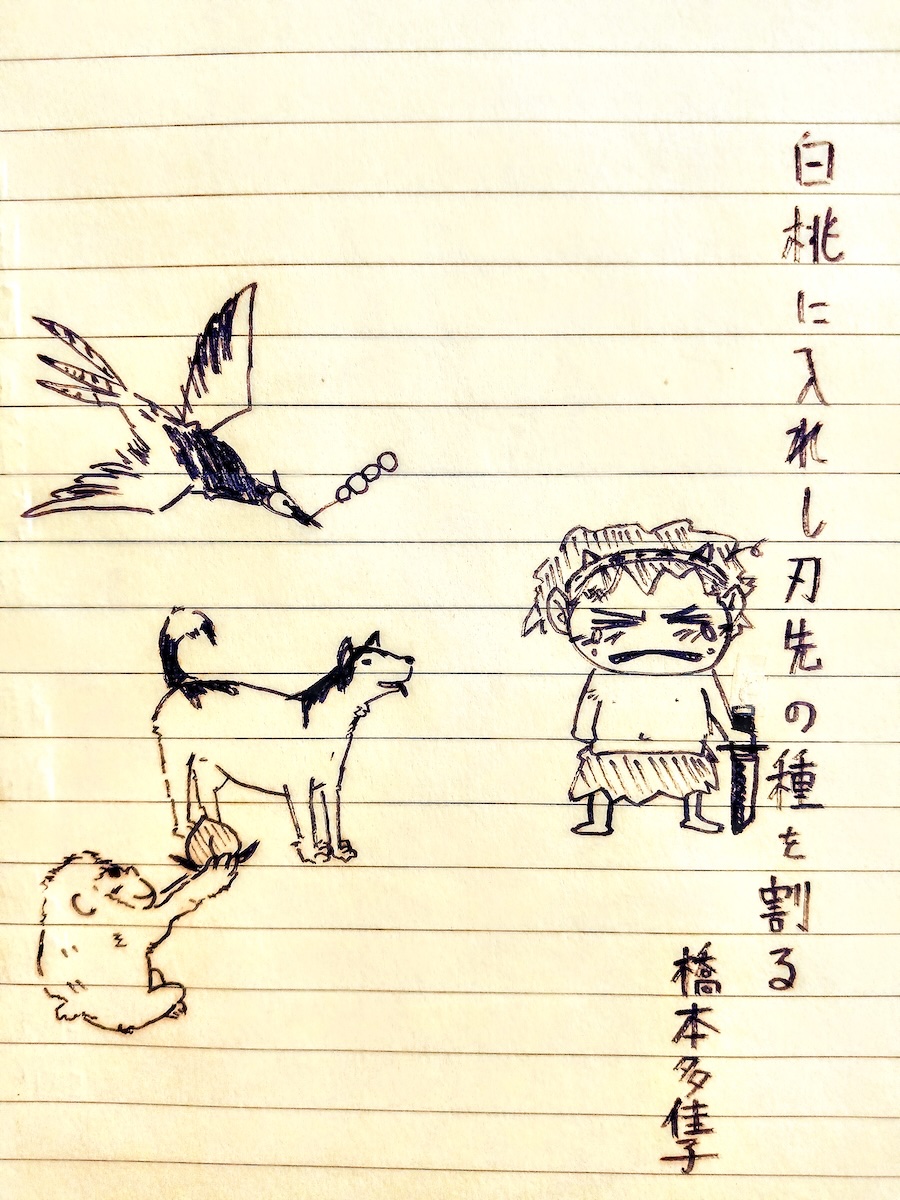 白桃に入れし刃先の種を割る
橋本多佳子